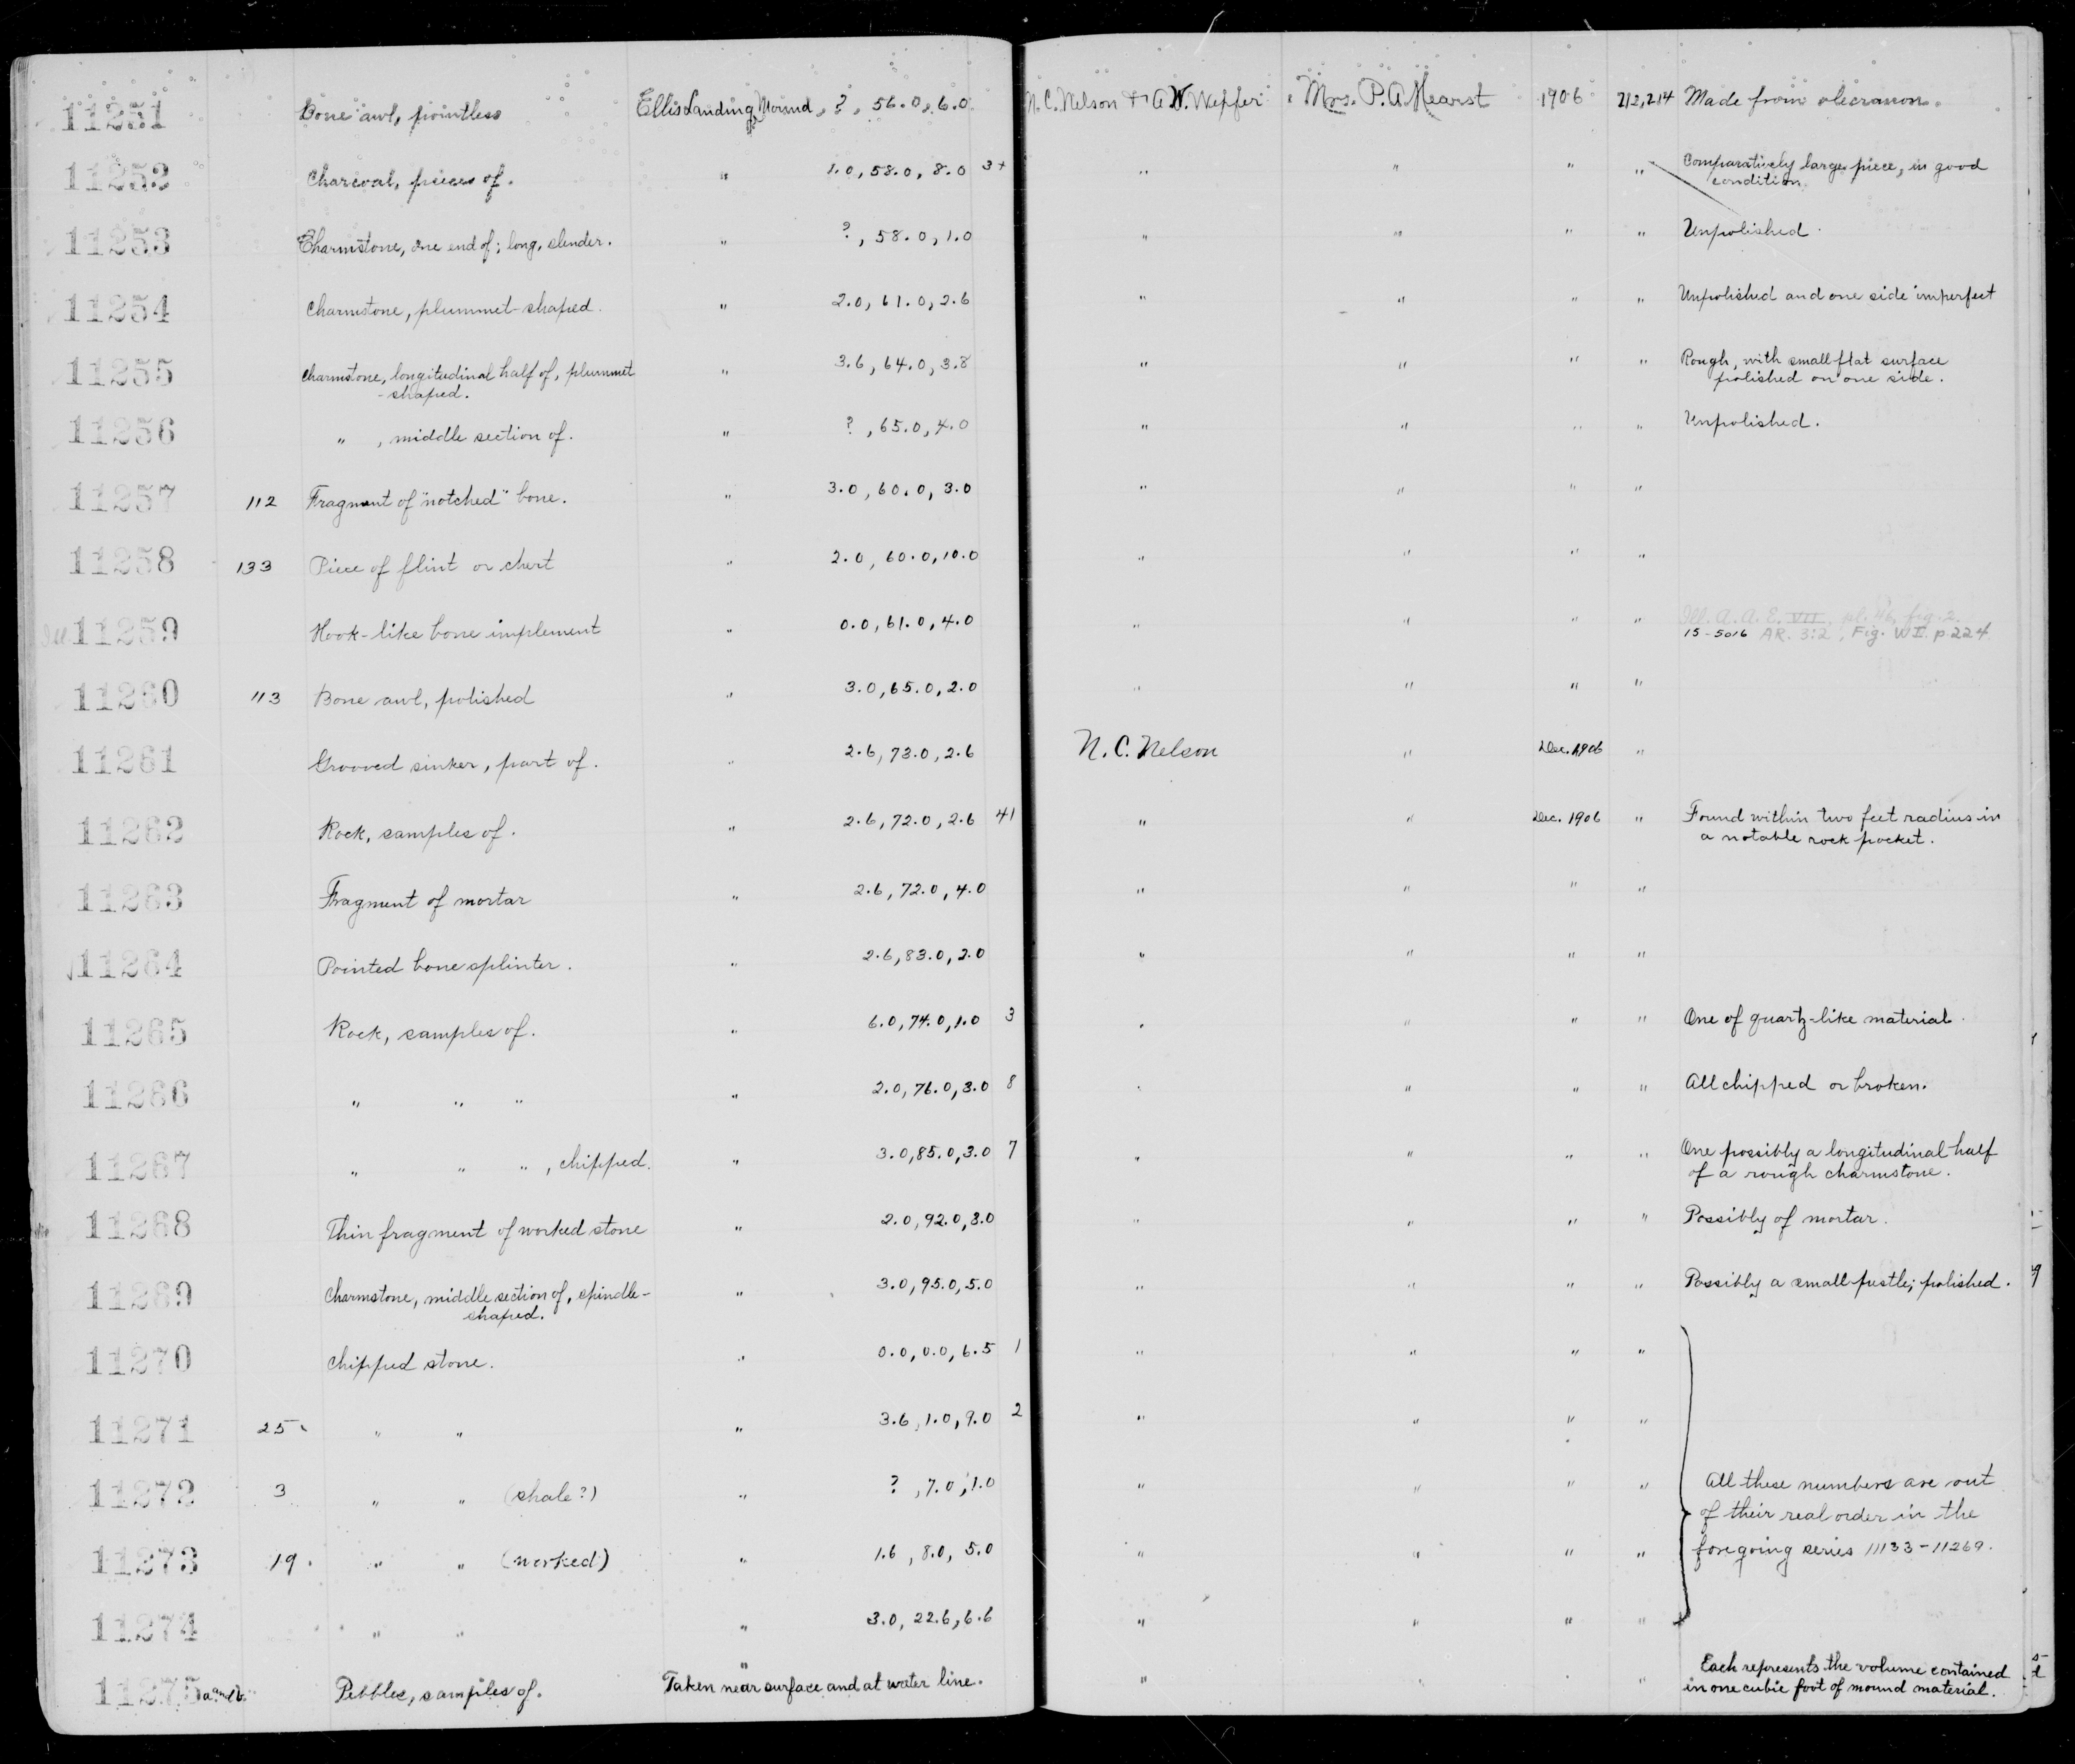 11251 Bone awl, pointless Ellis Landing Mound, ?, 56.0, 6.0 N. C. Nelson & A. W. Wepfer Mrs. P. A. Hearst 1906 212,214 Made from olecranon.
11252 Charcoal, pieces of. " 1.0, 58.0, 8.0 3+ " " " " Comparatively large piece, in good
condition.
11253 Charmstone, one end of; long, slender. " ?, 58.0, 1.0 " " " " Unpolished.
11254 Charmstone, plummet-shaped. " 2.0, 61.0, 2.6 " " " " Unpolished and one side imperfect
11255 Charmstone, longitudinal half of, plummet " 3.6, 64.0, 3.8 " " " " Rough, with small flat surface
-shaped. polished on one side.
11256 " , middle section of. " ?, 65.0, 4.0 " " " " Unpolished.
11257 112 Fragment of "notched" bone. " 3.0, 60.0, 3.0 " " " "
11258 133 Piece of flint or chert " 2.0, 60.0, 10.0 " " " "
Ill. A. A. E. VII. pl. 46, fig. 2.
11259 Hook-like bone implement " 0.0, 61.0, 4.0 " " " " 15-5016 AR. 3:2, Fig. p. 224
11260 113 Bone awl, polished " 3.0, 65.0, 2.0 " " " "
11261 Grooved sinker, part of. " 2.6, 73.0, 2.6 N. C. Nelson " Dec. 1906 "
11262 Rock, samples of. " 2.6, 72.0, 2.6 41 " " Dec. 1906 " Found within two feet radius in
a notable rock pocket.
11263 Fragment of mortar " 2.6, 72.0, 4.0 " " " "
11264 Pointed bone splinter. " 2.6, 83.0, 2.0 " " " "
11265 Rock, samples of. " 6.0, 74.0, 1.0 3 " " " " One of quartz-like material.
11266 " " " " 2.0, 76.0, 3.0 8 " " " " All chipped or broken.
11267 " " " , chipped. " 3.0, 85.0, 3.0 7 " " " " One possibly a longitudinal half
of a rough charmstone.
11268 Thin fragment of worked stone " 2.0, 92.0, 3.0 " " " " Possibly of mortar.
11269 Charmstone, middle section of, spindle- " 3.0, 95.0, 5.0 " " " " Possibly a small pestle; polished.
shaped.
11270 Chipped stone. " 0.0, 0.0, 6.5 1 " " " "
11271 25 " " " 3.6, 1.0, 9.0 2 " " " "
11272 3 " " (shale?) " ?, 7.0, 1.0 " " " " All these numbers are out
of their real order in the
11273 19. " " (worked) " 1.6, 8.0, 5.0 " " " " foregoing series 11133-11269.
11274 " " " 3.0, 22.6, 6.6 " " " "
11275 a and b. Pebbles, samples of. " Taken near surface and at water line. " " " " Each represents the volume contained
in one cubic foot of mound material.